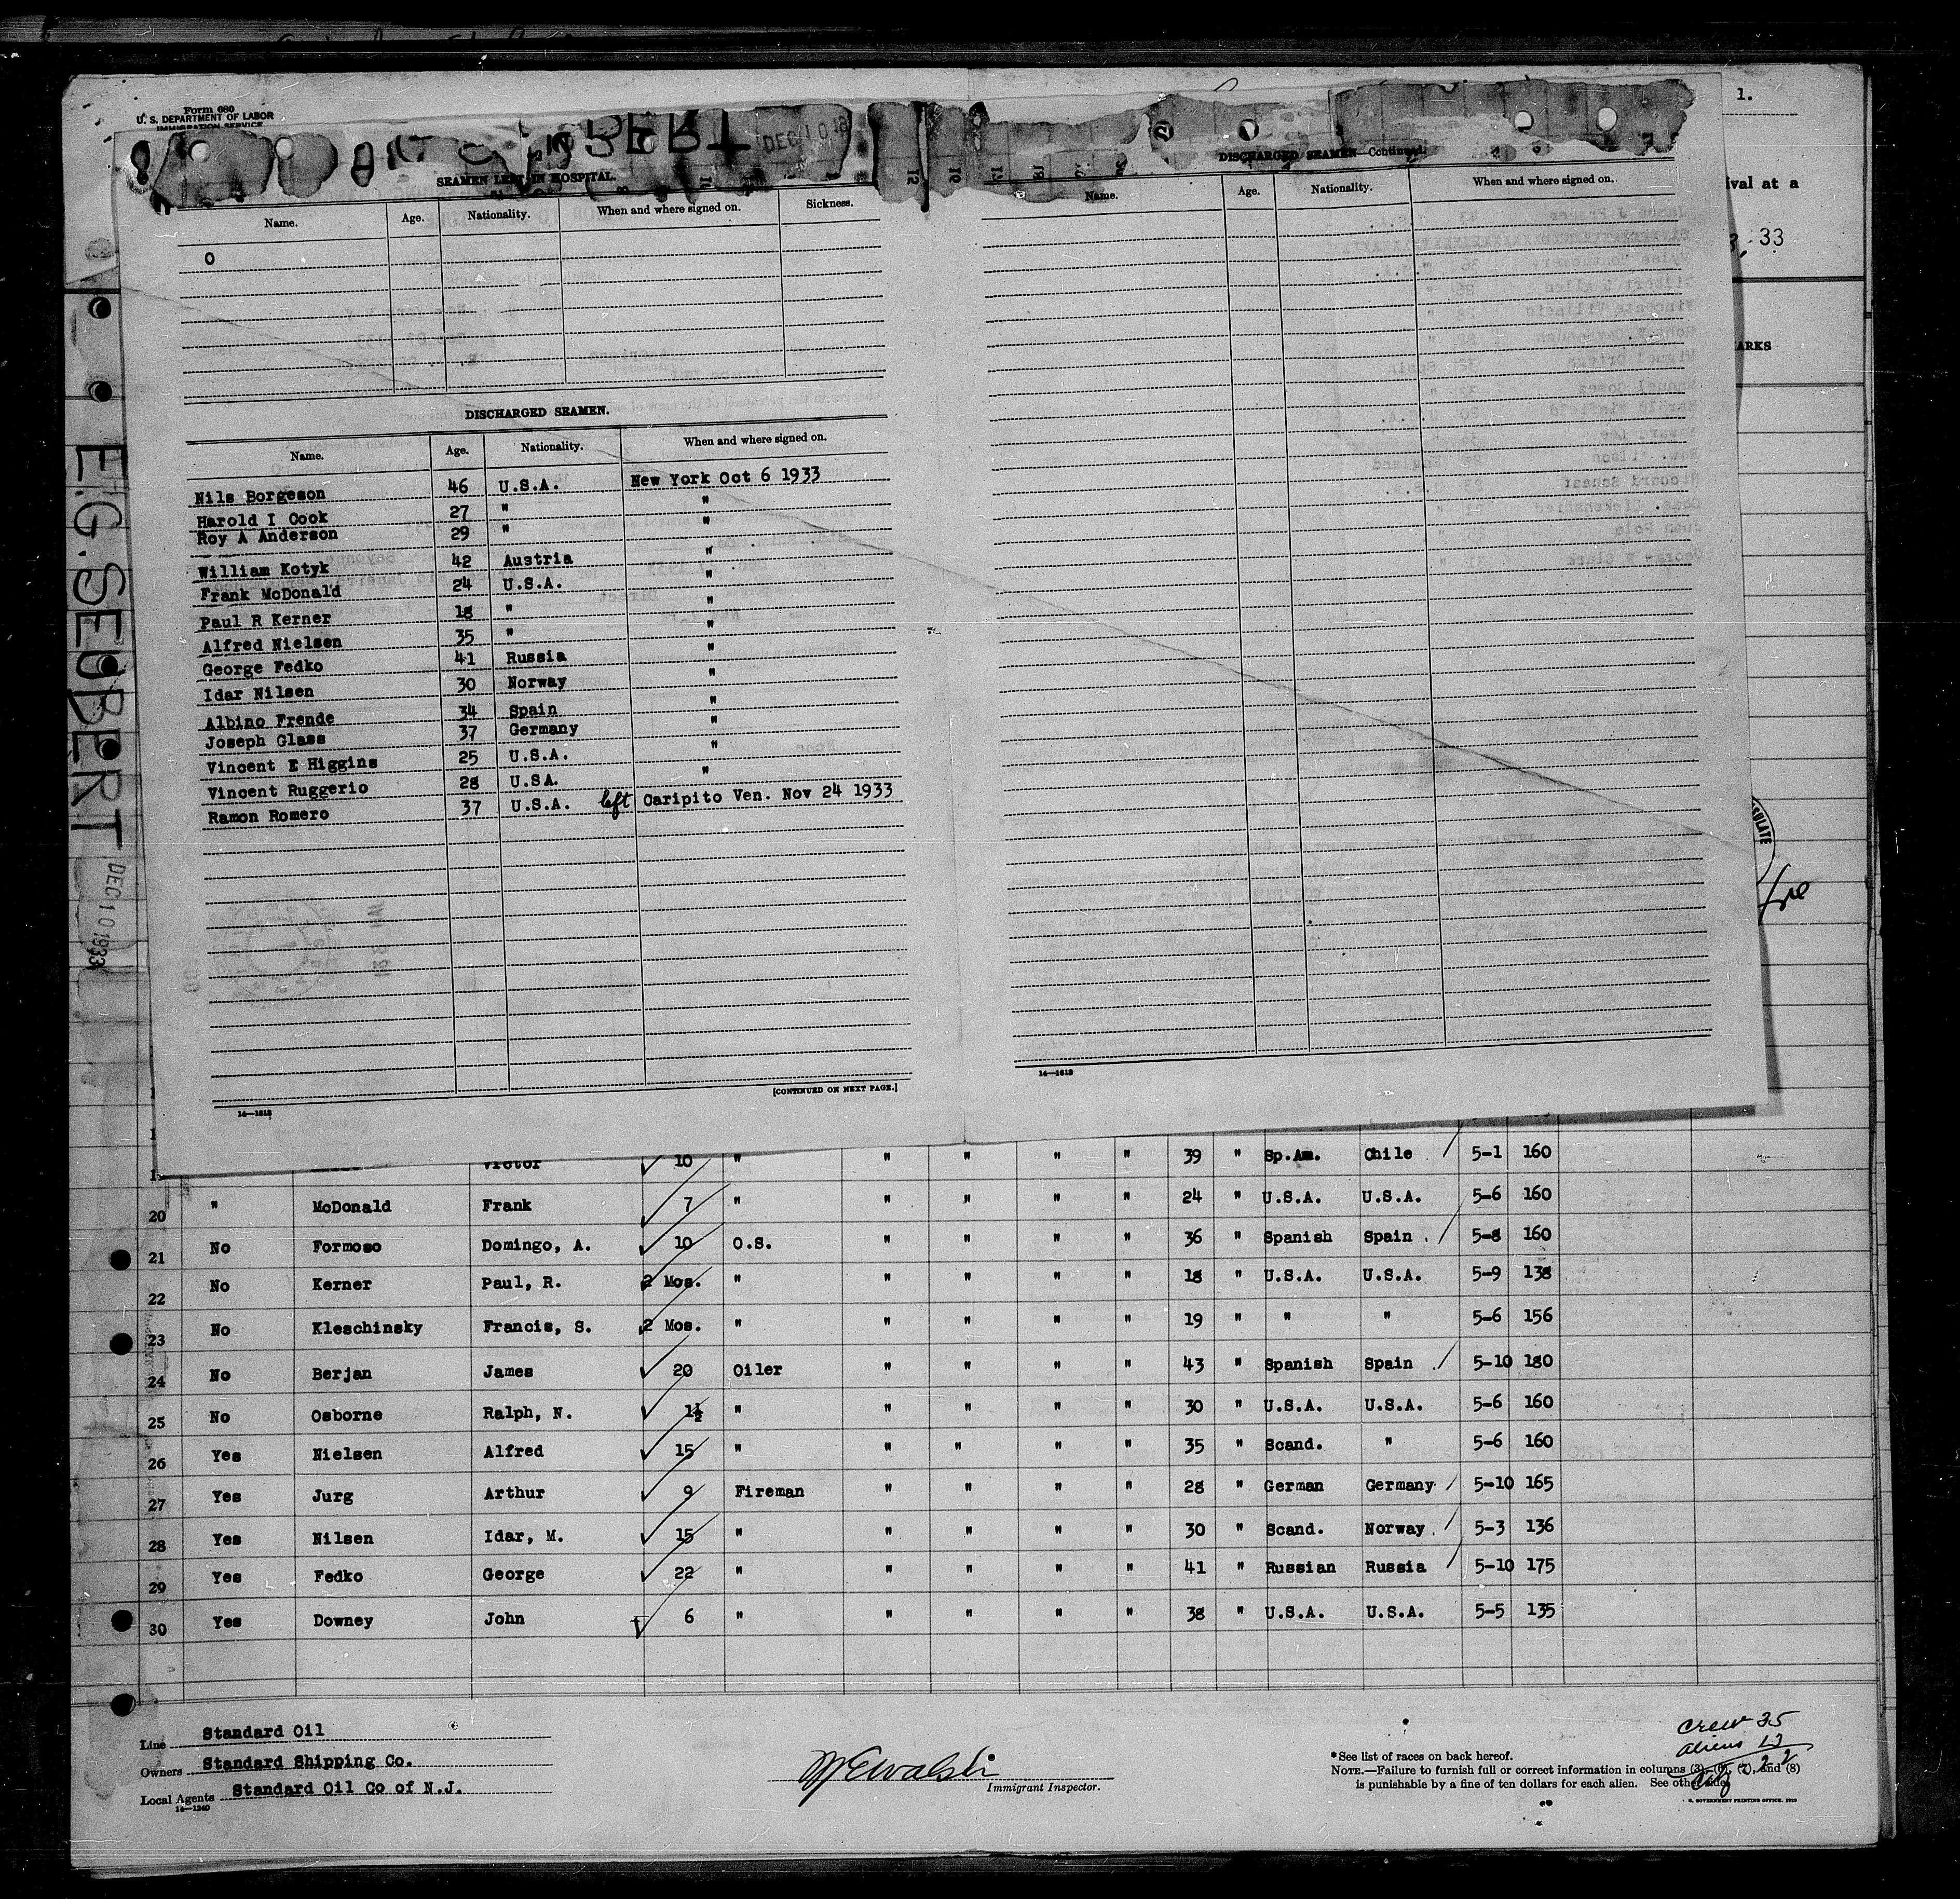 Form 680
U. S. DEPARTMENT OF LABOR
IMMIGRATION SERVICE
E.G. SEUBERT DEC 10 1933
1.
ival at a
33
ARKS
SEAMEN LEFT IN HOSPITAL.
Name. Age. Nationality. When and where signed on. Sickness.
0
DISCHARGED SEAMEN.
Name. Age. Nationality. When and where signed on.
Nils Borgeson 46 U.S.A. New York Oct 6 1933
Harold I Cook 27 " "
Roy A Anderson 29 " "
William Kotyk 42 Austria "
Frank McDonald 24 U.S.A. "
Paul R Kerner 18 " "
Alfred Nielsen 35 " "
George Fedko 41 Russia "
Idar Nilsen 30 Norway "
Albino Frende 34 Spain "
Joseph Glass 37 Germany "
Vincent E Higgins 25 U.S.A. "
Vincent Ruggerio 28 U.SA. "
Ramon Romero 37 U.S.A. left Caripito Ven. Nov 24 1933
[CONTINUED ON NEXT PAGE.]
14—1613
DISCHARGED SEAMEN—Continued.
Name. Age. Nationality. When and where signed on.
14—1613
SULATE
Victor 10 " " " " " 39 " Sp.Am. Chile 5-1 160
20 " McDonald Frank 7 " " " " " 24 " U.S.A. U.S.A. 5-6 160
21 No Formoso Domingo, A. 10 O.S. " " " " 36 " Spanish Spain 5-8 160
22 No Kerner Paul, R. 2 Mos. " " " " " 18 " U.S.A. U.S.A. 5-9 138
23 No Kleschinsky Francis, S. 2 Mos. " " " " " 19 " " " 5-6 156
24 No Berjan James 20 Oiler " " " " 43 " Spanish Spain 5-10 180
25 No Osborne Ralph, N. 1½ " " " " " 30 " U.S.A. U.S.A. 5-6 160
26 Yes Nielsen Alfred 15 " " " " " 35 " Scand. " 5-6 160
27 Yes Jurg Arthur 9 Fireman " " " " 28 " German Germany 5-10 165
28 Yes Nilsen Idar, M. 15 " " " " " 30 " Scand. Norway 5-3 136
29 Yes Fedko George 22 " " " " " 41 " Russian Russia 5-10 175
30 Yes Downey John 6 " " " " " 38 " U.S.A. U.S.A. 5-5 135
Line Standard Oil
Owners Standard Shipping Co.
Local Agents Standard Oil Co of N.J.
14—1240
Immigrant Inspector.
Crew 35
Aliens 13
22
*See list of races on back hereof.
NOTE.—Failure to furnish full or correct information in columns (3), (6), (7), and (8)
is punishable by a fine of ten dollars for each alien. See other side.